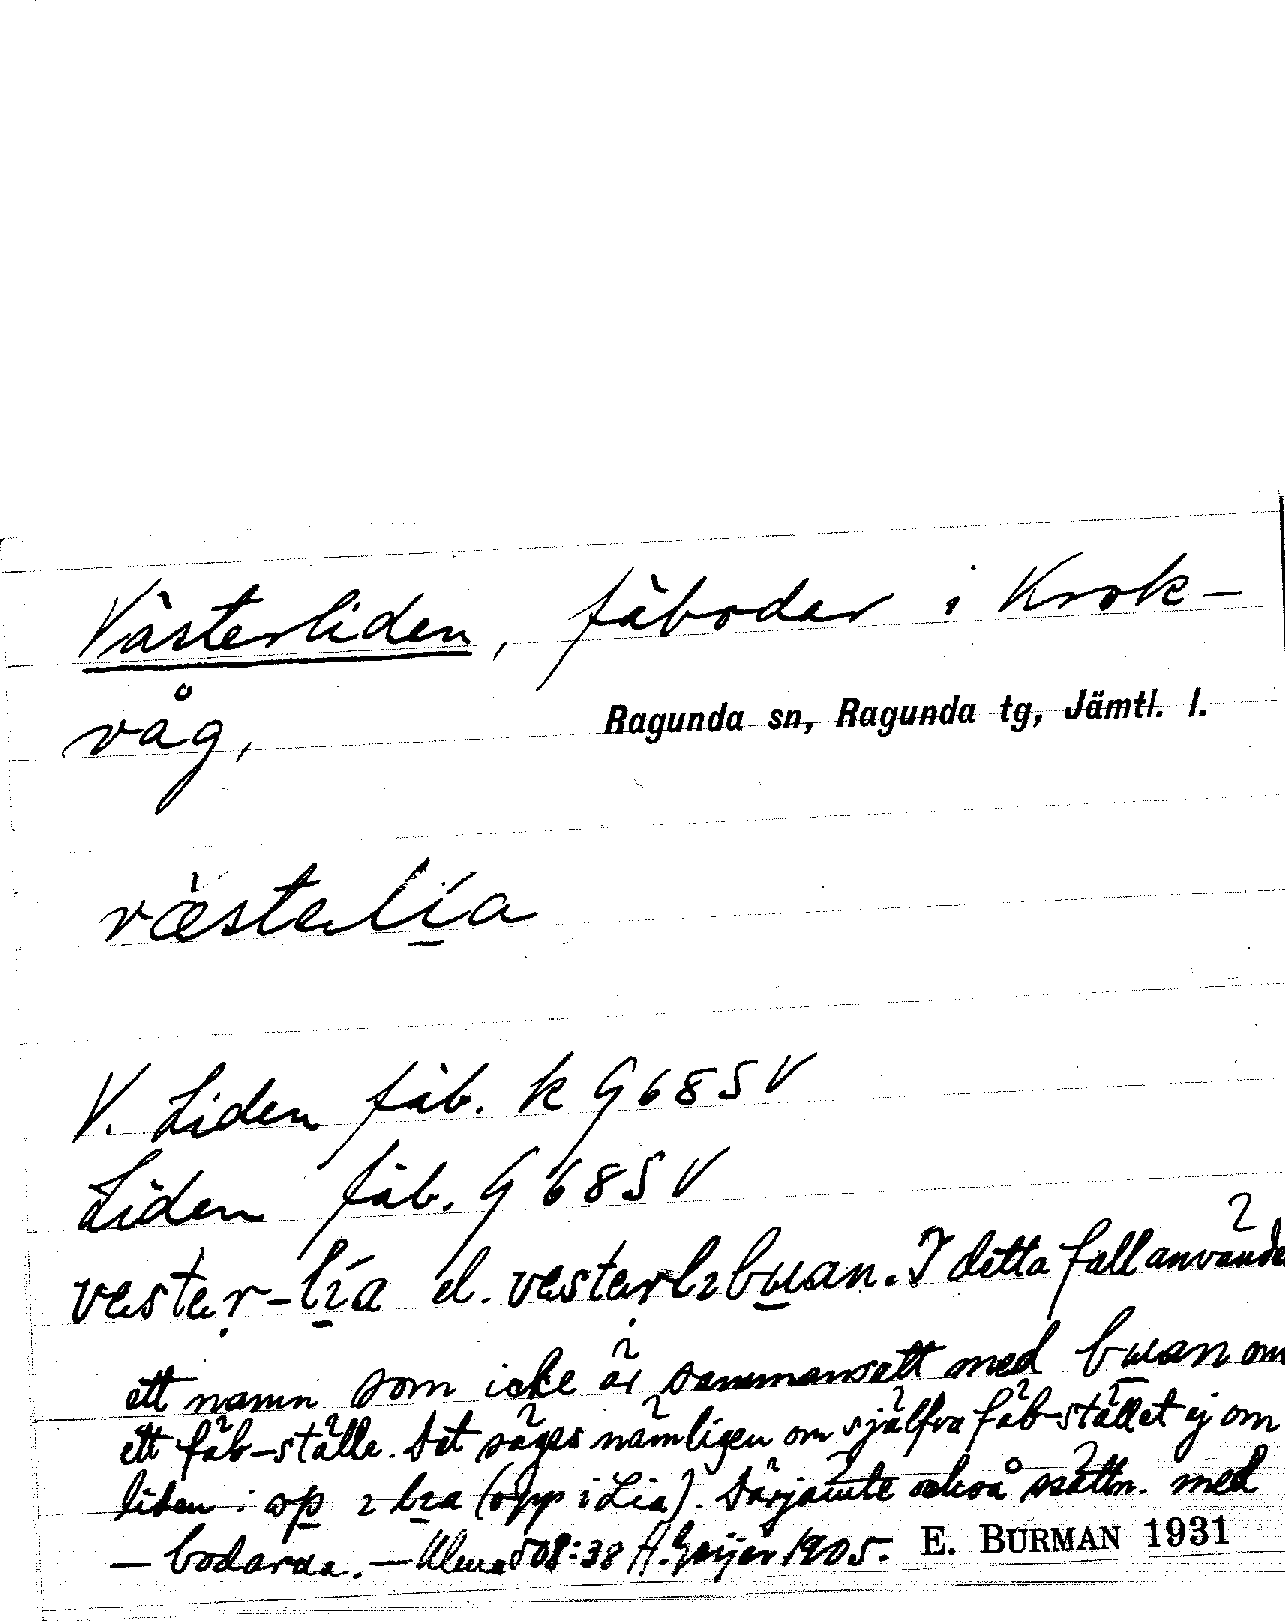 Västerliden, fäboder i Krok-
våg,
Ragunda sn, Ragunda tg, Jämtl. l.
væstalía
V. Liden fäb. k G68SV
Liden fäb. G68SV
vester-lía el. vesterlıbuan. I detta fall använde
ett namn som icke är sammansatt med buan om
ett fäb-ställe. Det säges nämligen om själfva fäb-stället ej om
liden: op ı lıa (opp i Lia). Därjämte också med
- bodarna. - 508:38 H. Geijer 1905.
E. BURMAN 1931